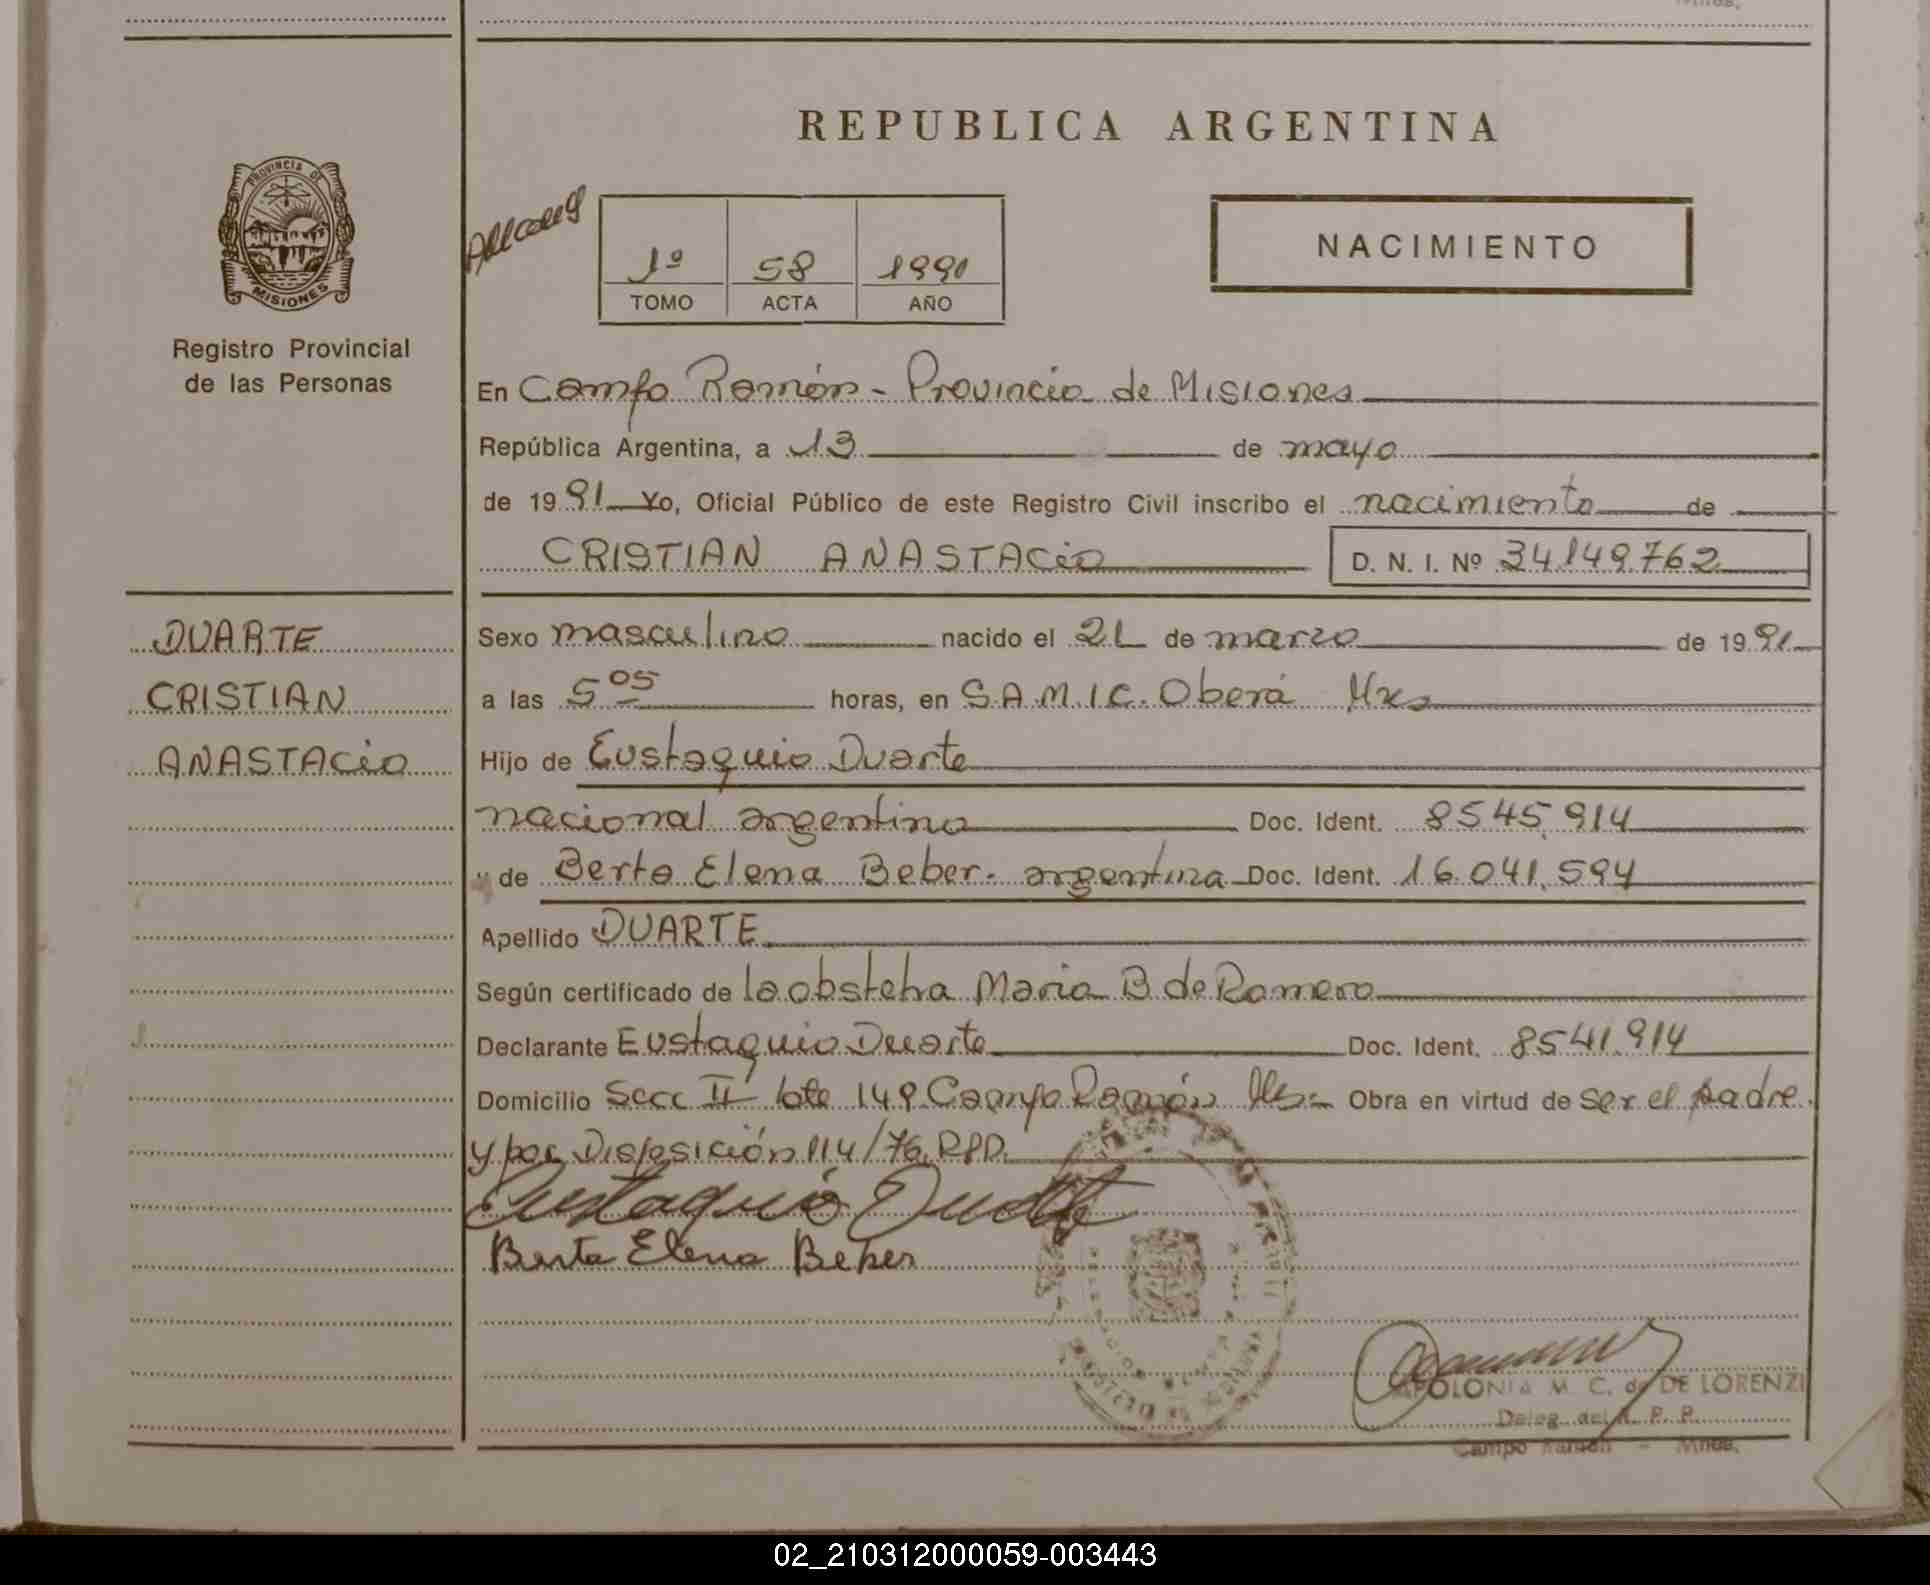 Mnes.
REPUBLICA ARGENTINA
PROVINCIA DE
MISIONES
Registro Provincial
de las Personas
1º 58 1991
TOMO ACTA AÑO
NACIMIENTO
En Campo Ramón - Provincia de Misiones
República Argentina, a 13 de mayo
de 1991 Yo, Oficial Público de este Registro Civil inscribo el nacimiento de
CRISTIAN ANASTACio D. N. I. Nº 34149762
DUARTE
CRISTIAN
ANASTACio
Sexo masculino nacido el 21 de marzo de 1991
a las 5 05 horas, en S.A.M.I.C. Oberá Mxs
Hijo de Eustaquio Duarte
nacional argentino Doc. Ident. 8545.914
y de Berta Elena Beber. argentina Doc. Ident. 16.041.594
Apellido DUARTE
Según certificado de la obstetra Maria B de Romero
Declarante Eustaquio Duarte Doc. Ident. 8541.914
Domicilio Secc II lote 149 Campo Ramón Ms= Obra en virtud de ser el padre.
y por Disposición 114/76. RPP.
Eustaquio Duarte
Berta Elena Beber
APOLONIA M. C. de DE LORENZI
Deleg. del R. P. P.
Campo Ramón - Mnes.
02_210312000059-003443